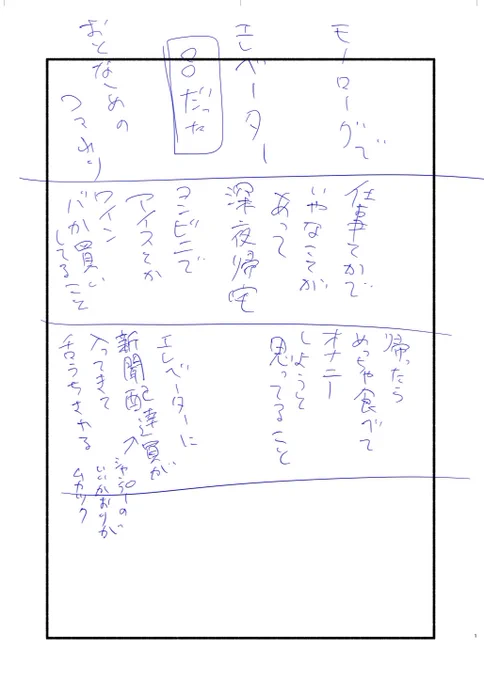 モノローグで
エレベーター
8だった
おとなゐの
つつわり
仕事でかで
いやなことが
あって
深夜帰宅
コンビニで
アイスとか
ワイン
バカ買い
してること
帰ったら
めっちゃ食べて
オナニー
しようと
思ってること
エレベーターに
新聞配達員が
入ってきて
舌うちされる
シャンプーの
いいかおりが
ムカつく
1